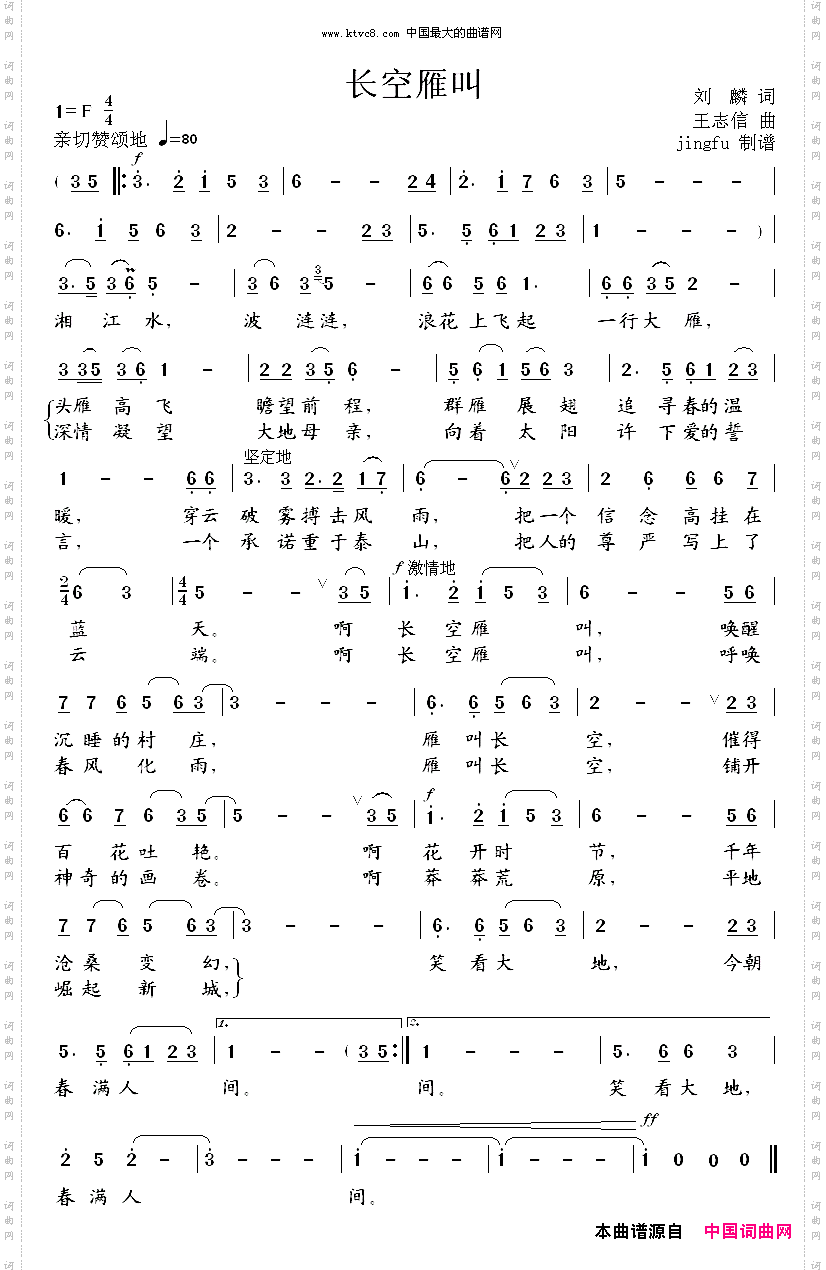 www.ktvc8.com 中国最大的曲谱网
长空雁叫
1=F 4/4
刘 麟 词
王志信 曲
亲切赞颂地 ♩=80
jingfu 制谱
f
( 3 5 ‖: 3. 2 1 5 3 | 6 - - 2 4 | 2. 1 7 6 3 | 5 - - - |
6. 1 5 6 3 | 2 - - 2 3 | 5. 5 6 1 2 3 | 1 - - - ) |
3. 5 3 6 5 - | 3 6 3 3 5 - | 6 6 5 6 1. | 6 6 3 5 2 - |
湘 江 水, 波 涟涟, 浪花 上飞起 一行大 雁,
3 3 5 3 6 1 - | 2 2 3 5 6 - | 5 6 1 5 6 3 | 2. 5 6 1 2 3 |
头雁 高 飞 瞻望 前 程, 群雁 展 翅 追 寻春的 温
深情 凝 望 大地 母 亲, 向着 太 阳 许 下爱的 誓
坚定地
1 - - 6 6 | 3. 3 2. 2 1 7 | 6 - 6 2 2 3 | 2 6 6 6 7 |
暖, 穿云 破 雾搏击风 雨, 把一个 信 念 高挂在
言, 一个 承 诺重于泰 山, 把人的 尊 严 写上了
f 激情地
2/4 6 3 | 4/4 5 - - ∨ 3 5 | 1. 2 1 5 3 | 6 - - 5 6 |
蓝 天。 啊 长 空雁 叫, 唤醒
云 端。 啊 长 空雁 叫, 呼唤
7 7 6 5 6 3 | 3 - - - | 6. 6 5 6 3 | 2 - - ∨ 2 3 |
沉 睡 的 村 庄, 雁 叫长 空, 催得
春 风 化 雨, 雁 叫长 空, 铺开
f
6 6 7 6 3 5 | 5 - - ∨ 3 5 | 1. 2 1 5 3 | 6 - - 5 6 |
百 花 吐 艳。 啊 花 开时 节, 千年
神奇 的 画 卷。 啊 莽 莽荒 原, 平地
7 7 6 5 6 3 | 3 - - - | 6. 6 5 6 3 | 2 - - 2 3 |
沧桑 变 幻, 笑 看大 地, 今朝
崛起 新 城,
1. 2.
5. 5 6 1 2 3 | 1 - - ( 3 5 :‖ 1 - - - | 5. 6 6 3 |
春 满人 间。 间。 笑 看大 地,
ff
2 5 2 - | 3 - - - | 1 - - - | 1 - - - | 1 0 0 0 ‖
春 满 人 间。
本曲谱源自 中国词曲网
词曲网